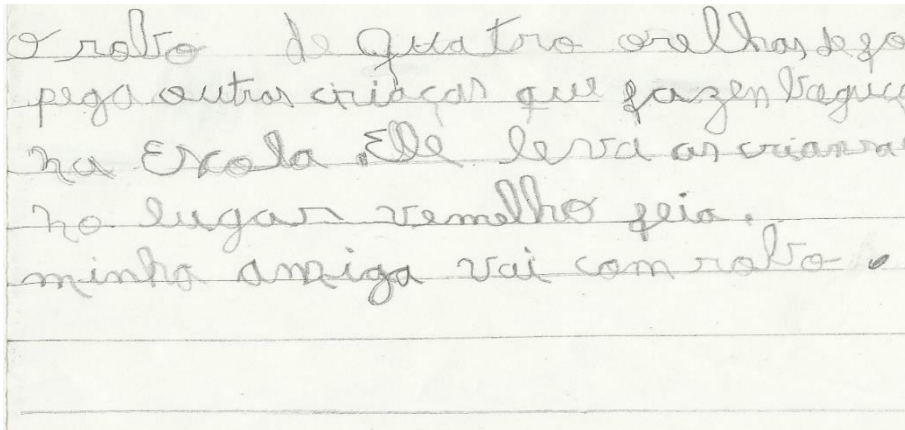 O robo de quatro orelhas de fo
pega outras criaças que fazen bagunc
na Escola. Ele leva as criansa
no lugar vemelho feio.
minha amiga vai com robo.